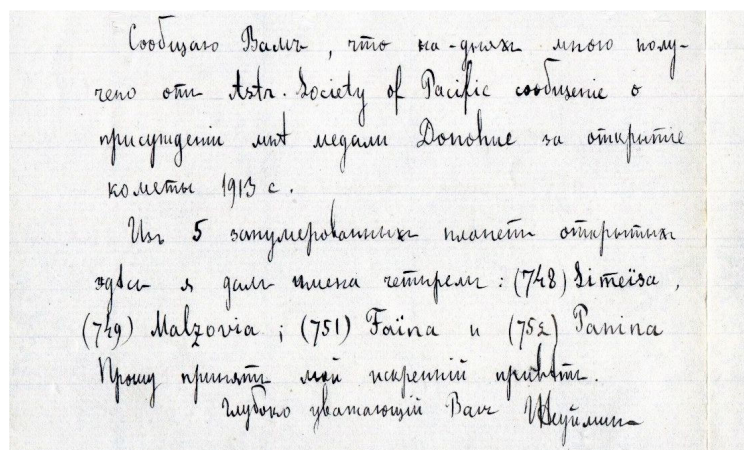 Сообщаю Вамъ, что на-дняхъ мною полу-
чено отъ Astr. Society of Pacific сообщеніе о
присужденіи мнѣ медали Donohue за открытіе
кометы 1913 c.
Изъ 5 занумерованныхъ планетъ открытыхъ
здѣсь я далъ имена четыремъ: (748) Simeïsa,
(749) Malzovia; (751) Faïna и (752) Panina
Прошу принять мой искренній привѣтъ.
Глубоко уважающій Васъ Г Неуйминъ